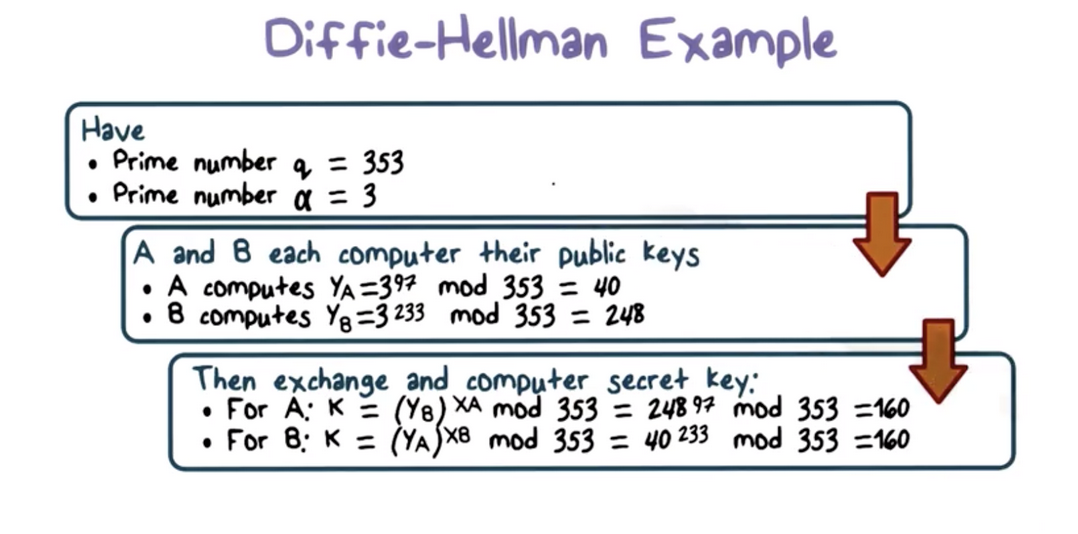 Diffie-Hellman Example
Have
• Prime number q = 353
• Prime number α = 3
A and B each computer their public keys
• A computes Y_A=3^97 mod 353 = 40
• B computes Y_B=3^233 mod 353 = 248
Then exchange and computer secret key:
• For A: K = (Y_B)^XA mod 353 = 248^97 mod 353 =160
• For B: K = (Y_A)^XB mod 353 = 40^233 mod 353 =160